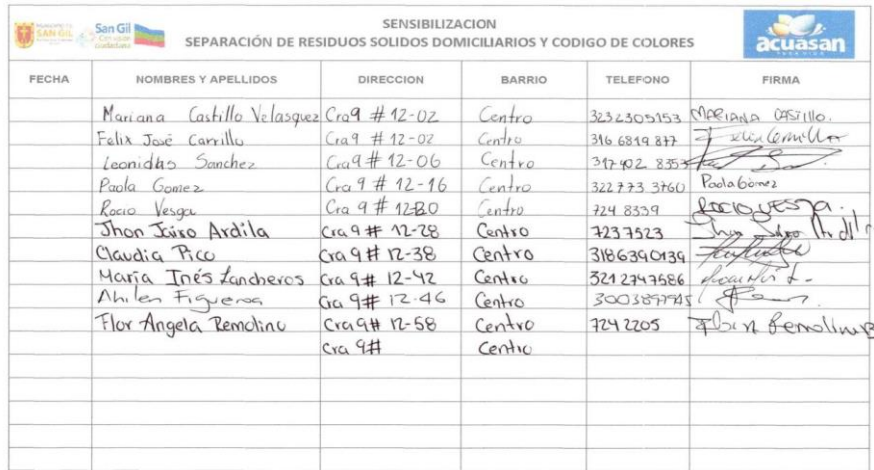 SAN GIL
San Gil
SENSIBILIZACION
SEPARACIÓN DE RESIDUOS SOLIDOS DOMICILIARIOS Y CODIGO DE COLORES
acuasan
FECHA NOMBRES Y APELLIDOS DIRECCION BARRIO TELEFONO FIRMA
Mariana Castillo Velasquez Cra 9 # 12-02 Centro 3232305153 MARIANA CASTILLO.
Felix José Carrillo Cra 9 # 12-02 Centro 316 6819 877 Felix Carrillo
Leonidas Sanchez Cra 9 # 12-06 Centro 317 402 8353
Paola Gomez Cra 9 # 12-16 Centro 322 773 3760 Paola Gómez
Rocio Vesga Cra 9 # 12-20 Centro 724 8339 ROCIO VESGA.
Jhon Jairo Ardila Cra 9 # 12-28 Centro 7237523 Jhon Jairo Ardila
Claudia Pico Cra 9 # 12-38 Centro 3186390139
María Inés Lancheros Cra 9 # 12-42 Centro 3212747586
Figueroa Cra 9 # 12-46 Centro
Flor Angela Remolina Cra 9 # 12-58 Centro 7242205 Flor Remolina
Cra 9 # Centro